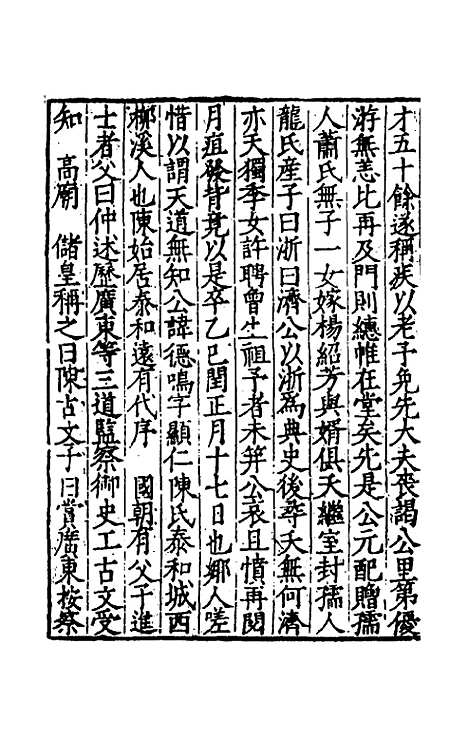 才五十餘遂稱疾以老子免先大夫喪謁公里第優
游無恙比再及門則繐帷在堂矣先是公元配贈孺
人蕭氏無子一女嫁楊紹芳與婿俱夭繼室封孺人
龍氏産子曰浙曰濟公以浙為典史後尋夭無何濟
亦夭獨季女許聘曾生祖予者未笄公哀且憤再閱
月疽發背竟以是卒乙巳閏正月十七日也鄉人嗟
惜以謂天道無知公諱德鳴字顯仁陳氏泰和城西
柳溪人也陳始居泰和遠有代序 國朝有父子進
士者父曰仲述歷廣東等三道監察御史工古文受
知 高廟 儲皇稱之曰陳古文子曰賞廣東按察